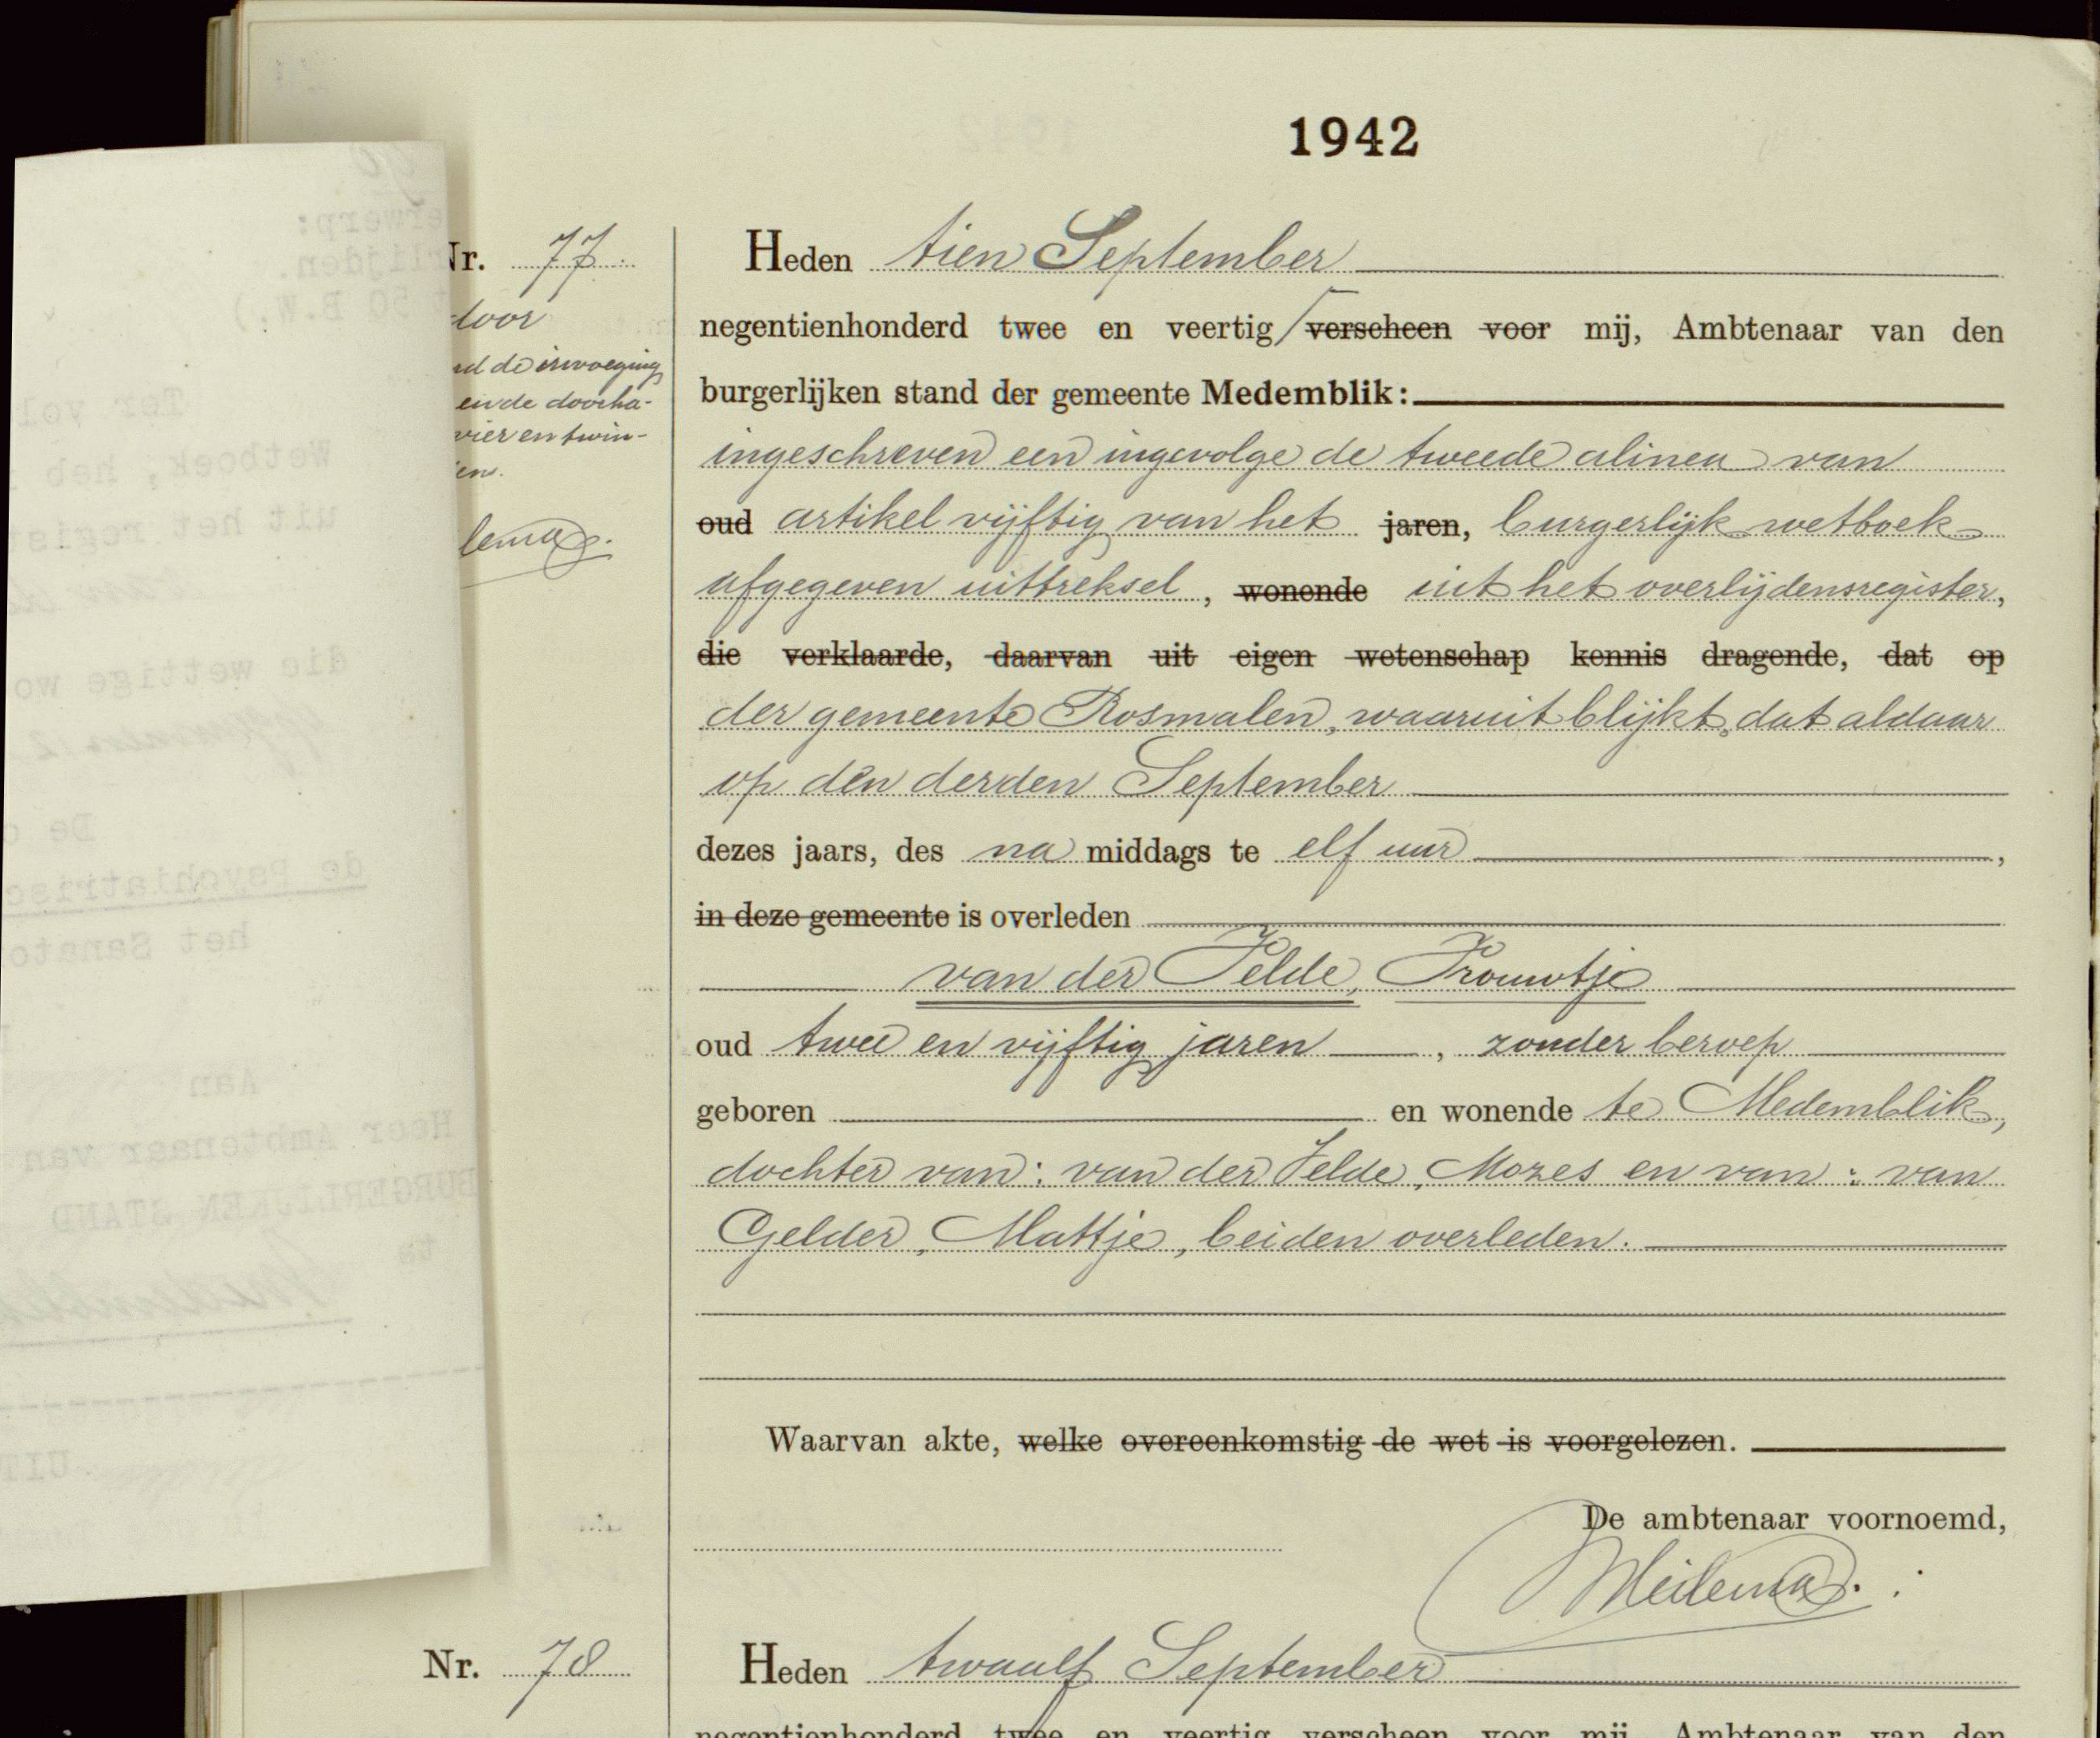 1942
Nr. 77.
door
de invoeging
en de doorha-
vier en twin-
Heden tien September
negentienhonderd twee en veertig / verscheen voor mij, Ambtenaar van den
burgerlijken stand der gemeente Medemblik:
ingeschreven een ingevolge de tweede alinea van
oud artikel vijftig van het jaren, burgerlijk wetboek
afgegeven uittreksel, wonende uit het overlijdensregister,
die verklaarde, daarvan uit eigen wetenschap kennis dragende, dat op
der gemeente Rosmalen, waaruit blijkt, dat aldaar
op den derden September
dezes jaars, des na middags te elf uur,
in deze gemeente is overleden
van der Velde, Vrouwtje
oud twee en vijftig jaren, zonder beroep
geboren en wonende te Medemblik,
dochter van: van der Velde, Mozes en van: van
Gelder, Mattje, beiden overleden.
Waarvan akte, welke overeenkomstig de wet is voorgelezen.
De ambtenaar voornoemd,
Meilema.
Nr. 78
Heden twaalf September
negentienhonderd twee en veertig verscheen voor mij, Ambtenaar van den